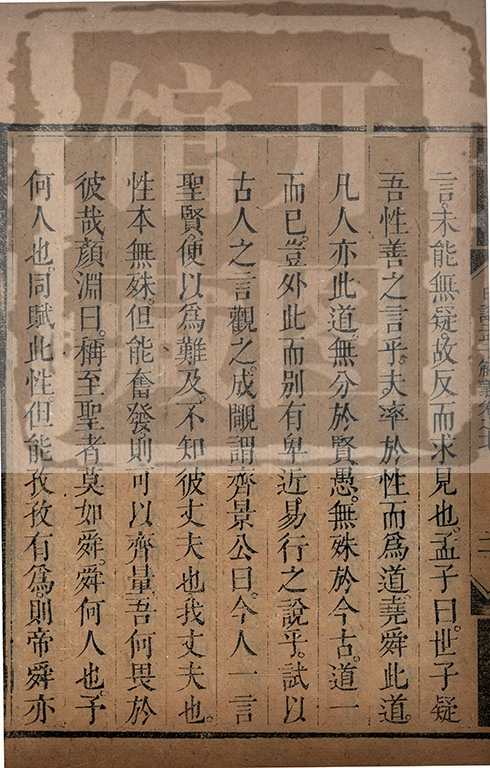 言。未能無疑。故反而求見也。孟子曰。世子疑
吾性善之言乎。夫率於性而爲道。堯舜此道。
凡人亦此道。無分於賢愚。無殊於今古。道一
而已。豈外此而別有卑近易行之說乎。試以
古人之言觀之。成覵謂齊景公曰。今人一言
聖賢。便以爲難及。不知彼丈夫也。我丈夫也。
性本無殊。但能奮發。則可以齊量。吾何畏於
彼哉。顏淵曰。稱至聖者莫如舜。舜何人也。予
何人也。同賦此性。但能孜孜有爲。則帝舜亦